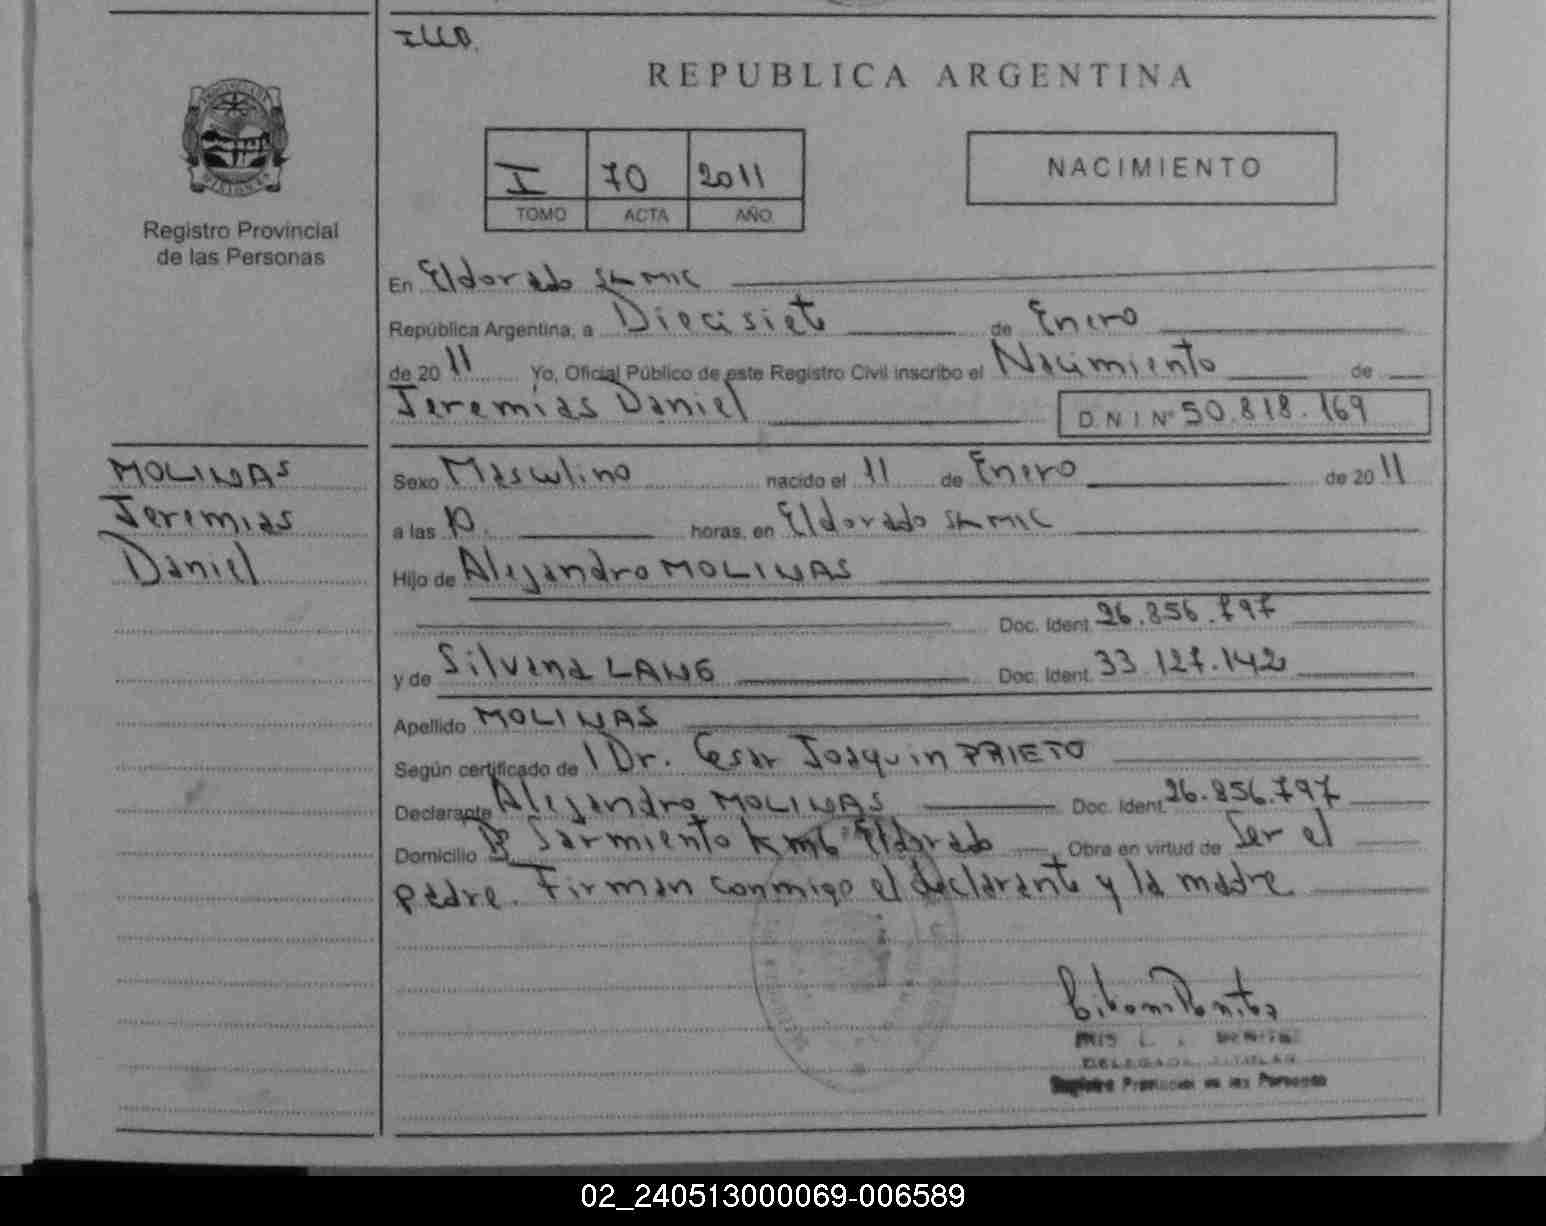 REPUBLICA ARGENTINA
Registro Provincial
de las Personas
I 70 2011
TOMO ACTA AÑO
NACIMIENTO
En Eldorado SAMIC
República Argentina, a Diecisiete de Enero
de 2011 Yo, Oficial Público de este Registro Civil inscribo el Nacimiento de
Jeremías Daniel D.N.I. Nº 50.818.169
MOLINAS
Jeremias
Daniel
Sexo Masculino nacido el 11 de Enero de 2011
a las horas, en Eldorado SAMIC
Hijo de Alejandro MOLINAS
Doc. Ident. 26.856.797
y de Silvana LANG Doc. Ident. 33.127.142
Apellido MOLINAS
Según certificado de Dr. Cesar Joaquin PRIETO
Declarante Alejandro MOLINAS Doc. Ident. 26.856.797
Domicilio Bº Sarmiento Km6 Eldorado Obra en virtud de Ser el
padre. Firman conmigo el declarante y la madre
Registro Provincial de las Personas
02_240513000069-006589